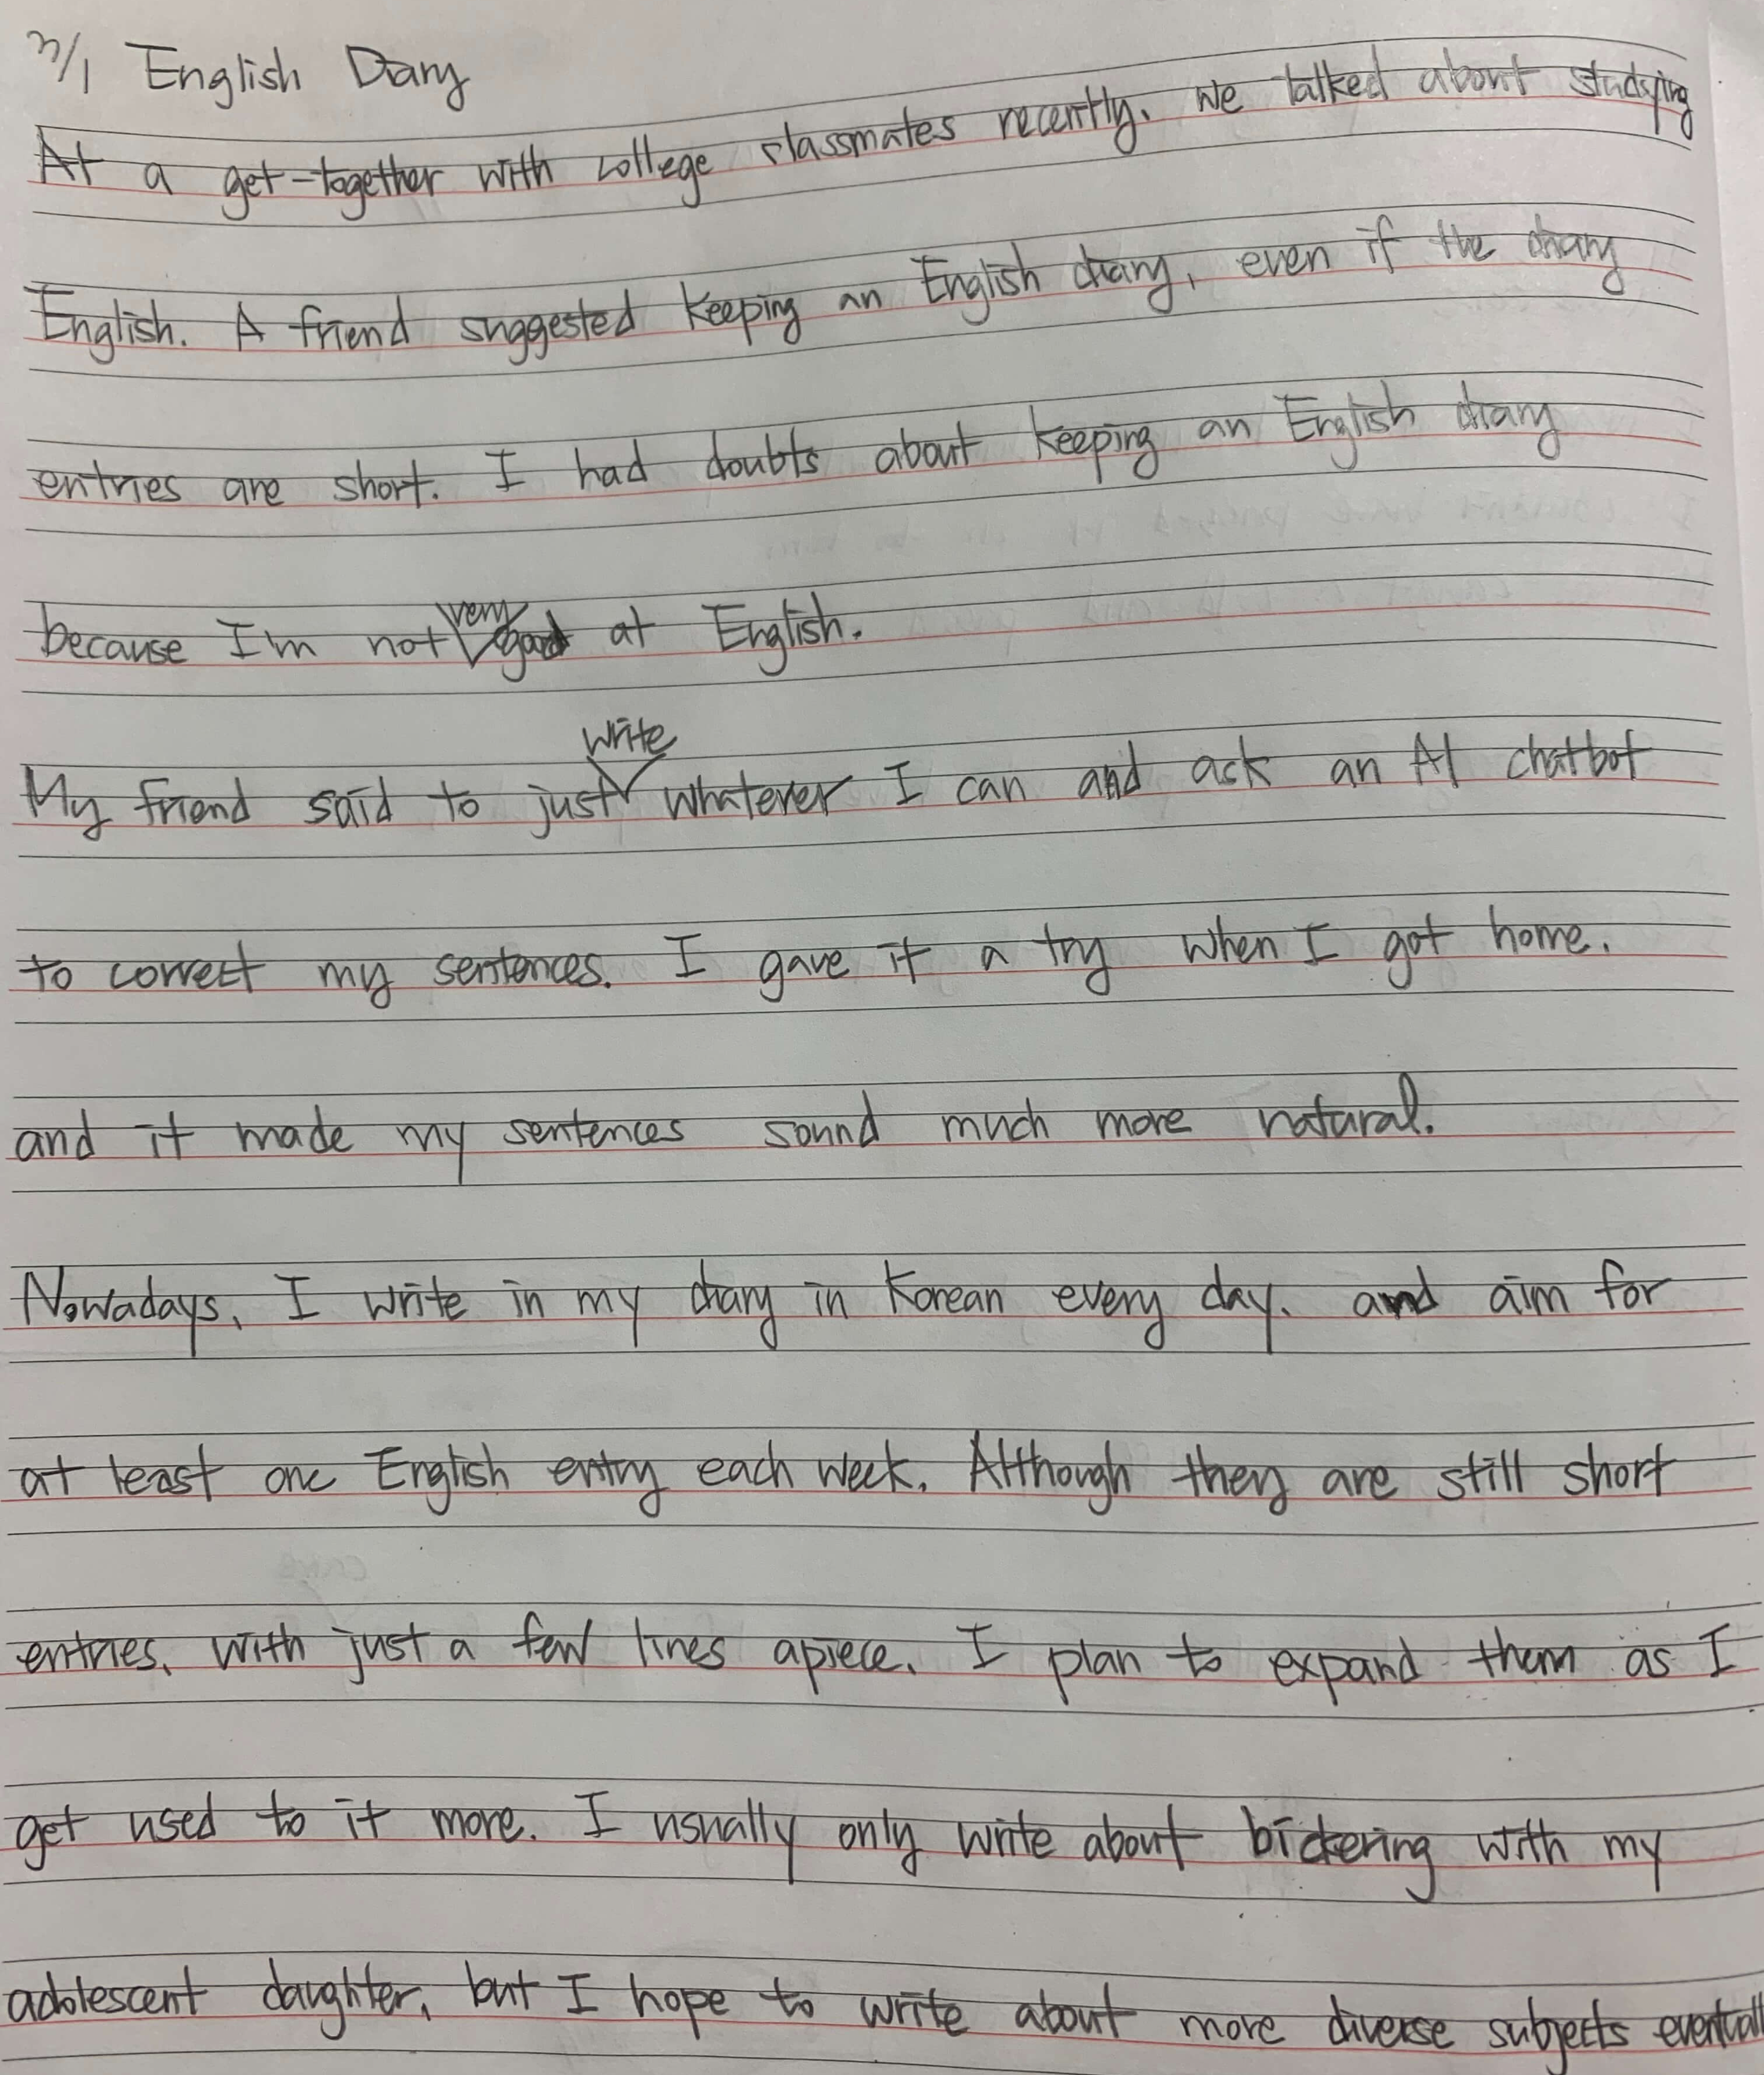 3/1 English Diary
At a get-together with college classmates recently, we talked about studying
English. A friend suggested keeping an English diary, even if the diary
entries are short. I had doubts about keeping an English diary
because I'm not very good at English.
My friend said to just write whatever I can and ask an AI chatbot
to correct my sentences. I gave it a try when I got home,
and it made my sentences sound much more natural.
Nowadays, I write in my diary in Korean every day, and aim for
at least one English entry each week. Although they are still short
entries, with just a few lines apiece, I plan to expand them as I
get used to it more. I usually only write about bickering with my
adolescent daughter, but I hope to write about more diverse subjects eventuall